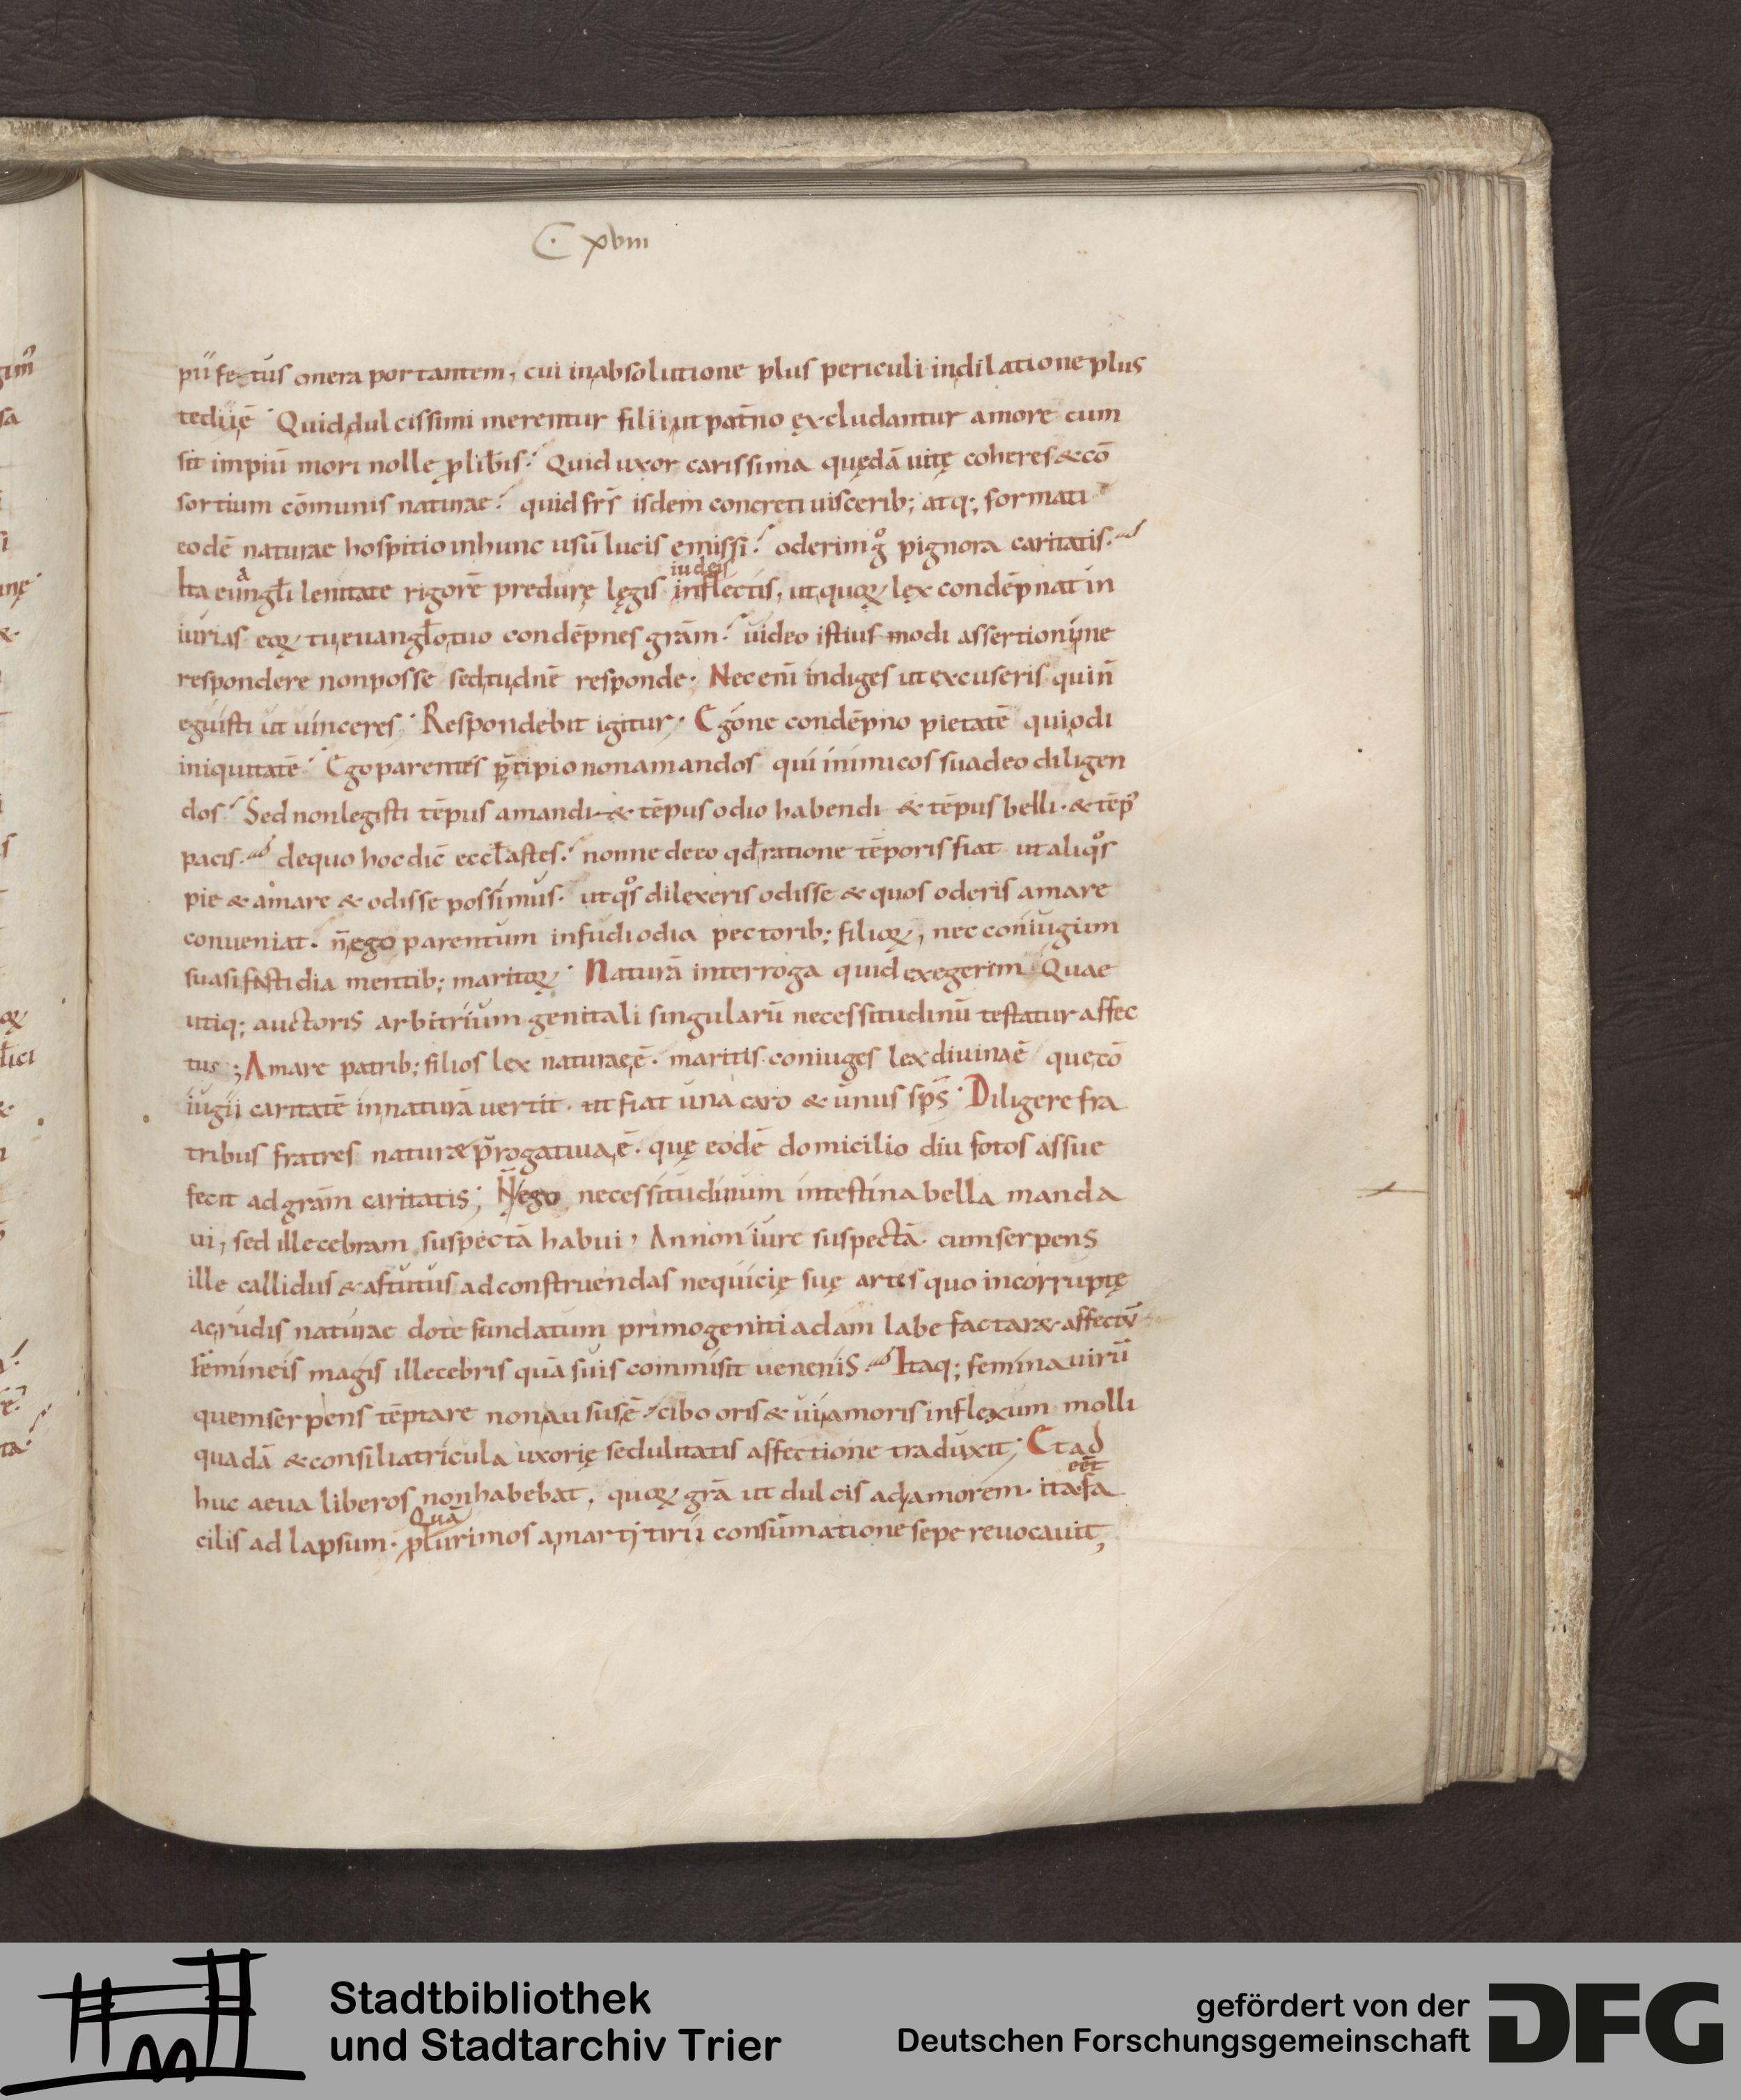 C· xviii
pii fetus onera portantem, cui inabsolutione plus periculi indilatione plus
tedii ē Quid dulcissimi merentur filii ut patno excludantur amore cum
sit impiū mori nolle plibis? Quid uxor carissima quędā uitę coheres & cō
sortium cōmunis naturae? quid frs isdem concreti uisceribꝫ atqꝫ formati
eodē naturae hospitio inhunc usū lucis emissi? oderim gͦ pignora caritatis
iudeis
Ita euangłi lenitate rigorē predurę lęgis inflectis, ut quoꝝ lex condēpnat in
iurias eoꝝ tu euangło tuo condēpnes grām? uideo istius modi assertionum ne
respondere nonposse sed tu dnē responde· Nec enī indiges ut excuseris qui ñ
eguisti ut uinceres· Respondebit igitur· Egone condēpno pietatē qui odi
iniquitatē? Ego parentes p̄cipio non amandos qui inimicos suadeo diligen
dos? Sed nonlegisti tēpus amandi & tēpus odio habendi & tēpus belli· & tēp᾽
pacis· dequo hoc dic̄ eccłastes? nonne de eo qđ ratione tēporis fiat ut aliqͦs
pie & amare & odisse possimus· ut qͦs dilexeris odisse & quos oderis amare
conueniat· ñ ego parentum infudi odia pectoribꝫ filioꝝ, nec coniugum
suasi fastidia mentibꝫ maritoꝝ· Naturā interroga quid exegerim Quae
utiqꝫ auctoris arbitrium genitali singularū necessitudinū testatur affec
tus; Amare patribꝫ filios lex naturae ē· maritis coniuges lex diuina ē que cō
iugii caritatē in naturā uertit· ut fiat una caro & unus sps· Diligere fra
tribus fratres naturæ prrogatiua ē· quę eodē domicilio diu fotos assue
fecit ad grām caritatis; Ñ ego necessitudinum intestina bella manda
ui, sed illecebram suspectā habui, An non iure suspectā cum serpens
ille callidus & astutus ad construendas nequicię suę artes quo incorruptę
ac rudis naturae dote fundatum primogeniti adam labefactaræ affectū
femineis magis illecebris quā suis commisit uenenis· Itaqꝫ femina uirū
quem serpens tēptare non ausus ē cibo oris & ui amoris inflexum molli
quadā & consiliatricula uxorię sedulitatis affectione traduxit; Et ad
eēt
huc aeua liberos nonhabebat, quoꝝ grā ut dulcis ad amorem· ita fa
Quā
cilis ad lapsum· plurimos a martyrii consūmatione sepe reuocauit,
Stadtbibliothek
und Stadtarchiv Trier
gefördert von der
Deutschen Forschungsgemeinschaft
DFG